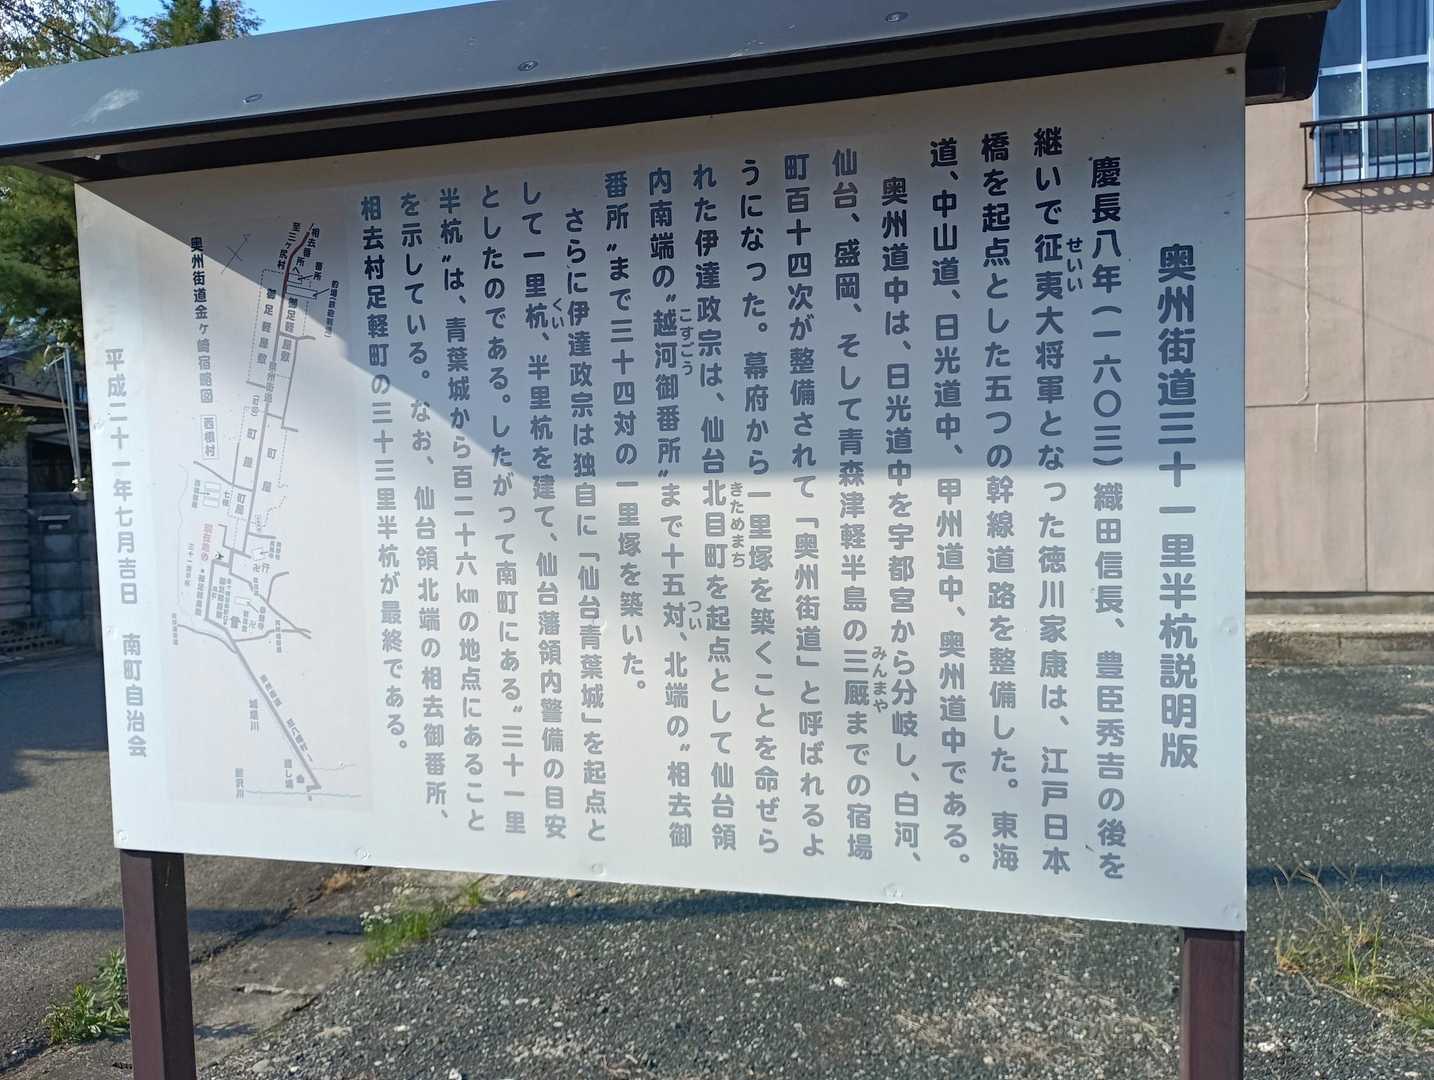 奥州街道三十一里半杭説明版
慶長八年(一六〇三)織田信長、豊臣秀吉の後を
継いで征夷大将軍となった徳川家康は、江戸日本
せいい
橋を起点とした五つの幹線道路を整備した。東海
道、中山道、日光道中、甲州道中、奥州道中である。
奥州道中は、日光道中を宇都宮から分岐し、白河、
仙台、盛岡、そして青森津軽半島の三厩までの宿場
みんまや
町百十四次が整備されて「奥州街道」と呼ばれるよ
うになった。幕府から一里塚を築くことを命ぜら
れた伊達政宗は、仙台北目町を起点として仙台領
きためまち
内南端の〝越河御番所〟まで十五対、北端の〝相去御
こすごう
つい
番所〟まで三十四対の一里塚を築いた。
さらに伊達政宗は独自に「仙台青葉城」を起点と
して一里杭、半里杭を建て、仙台藩領内警備の目安
くい
としたのである。したがって南町にある〝三十一里
半杭〟は、青葉城から百二十六kmの地点にあること
を示している。なお、仙台領北端の相去御番所、
相去村足軽町の三十三里半杭が最終である。
奥州街道金ヶ崎宿略図
至三ヶ尻村
相去番所へ
番所
御足軽屋敷
御足軽屋敷
奥州街道
町屋
町屋
町屋
西根村
七楼
現在地
城堰川
胆沢川
渡し場
平成二十一年七月吉日 南町自治会